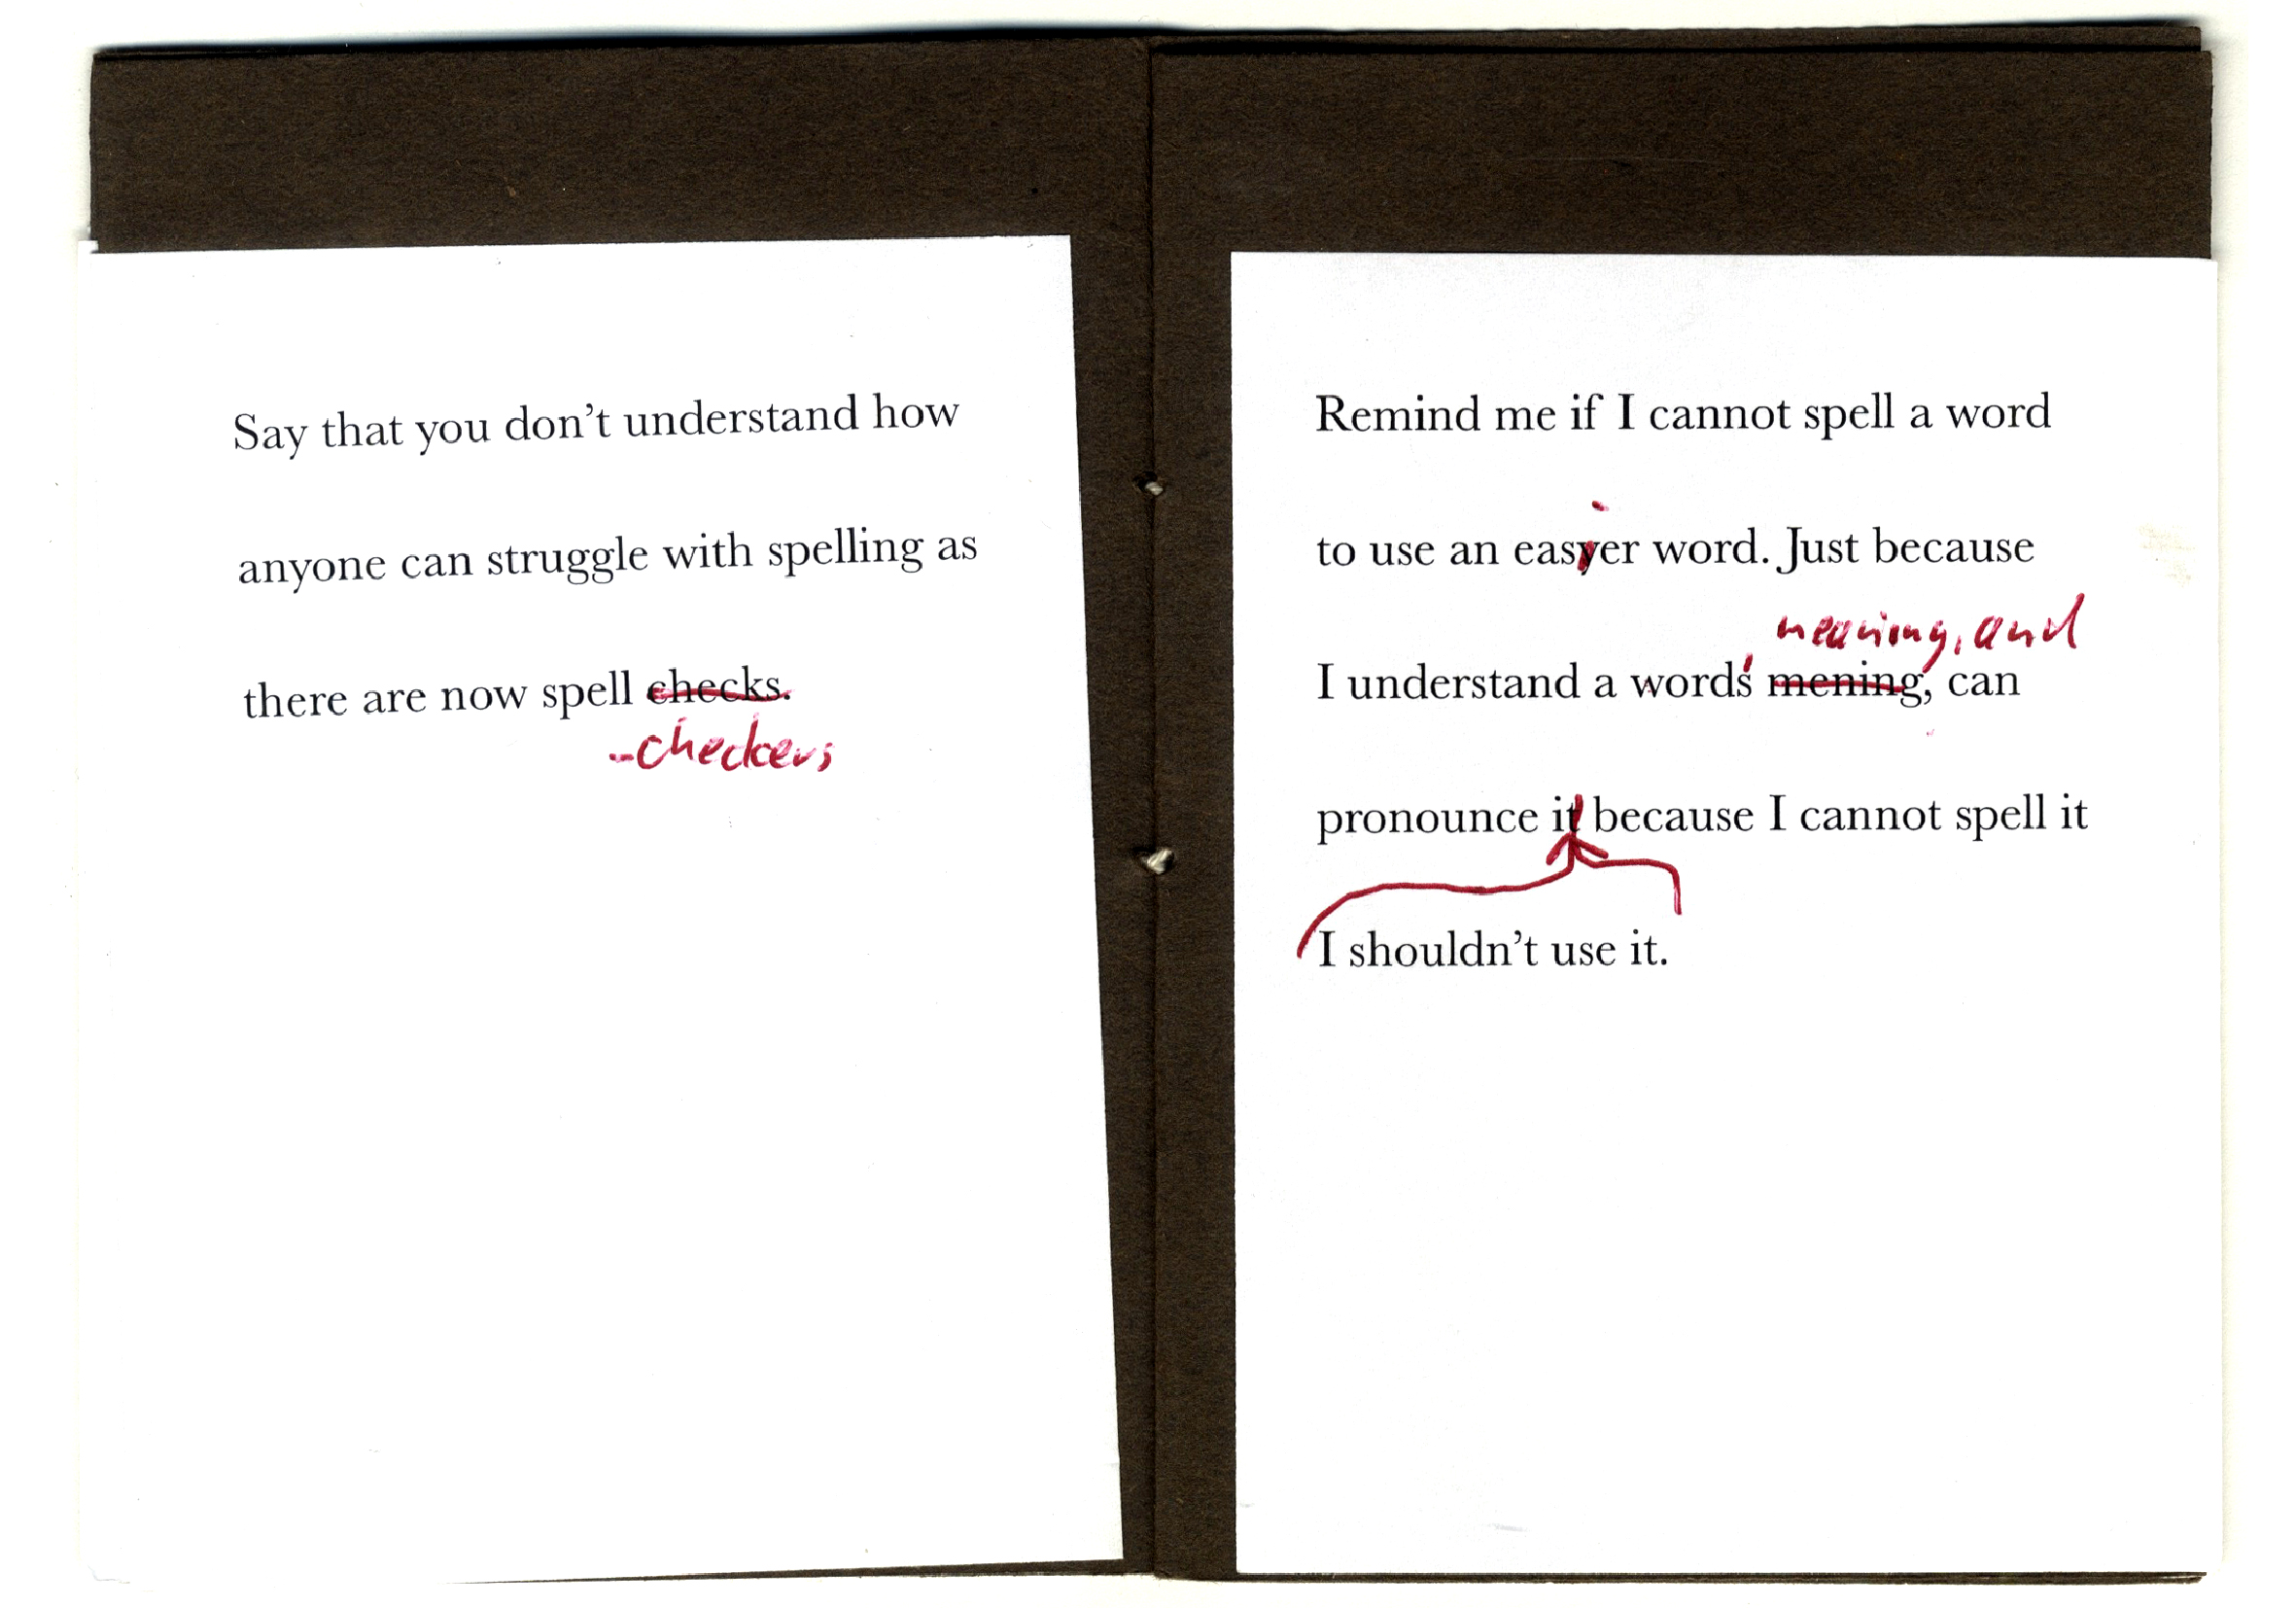 Say that you don't understand how
anyone can struggle with spelling as
there are now spell checks.
-checkers
Remind me if I cannot spell a word
to use an easyer word. Just because
meaning, and
I understand a word's mening, can
pronounce it because I cannot spell it
I shouldn't use it.